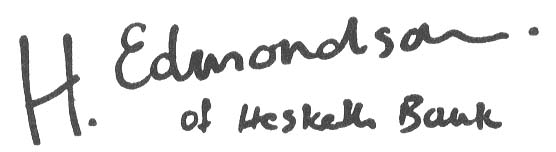 H. Edmondson.
of Hesketh Bank